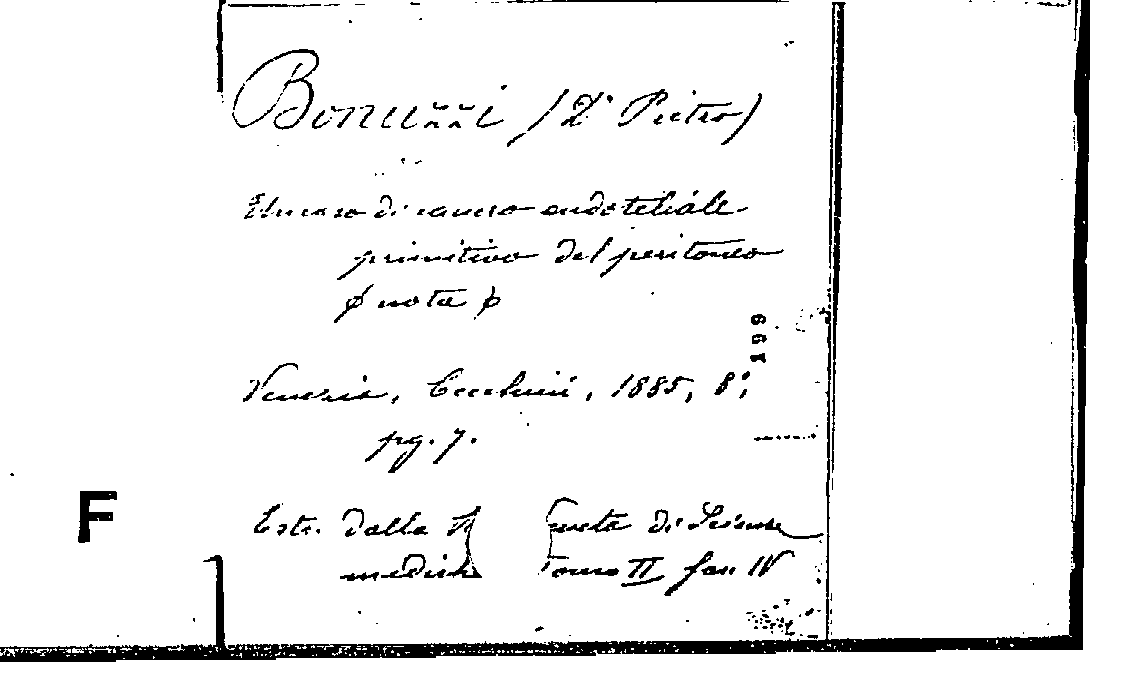 Bonuzzi (Dr Pietro)
Un caso di cancro endoteliale
primitivo del peritoneo
nota
199
Venezia, Cecchini, 1885, 8°,
pg. 7.
Estr. dalla veneta di Scienze
F
mediche Tomo II fasc IV